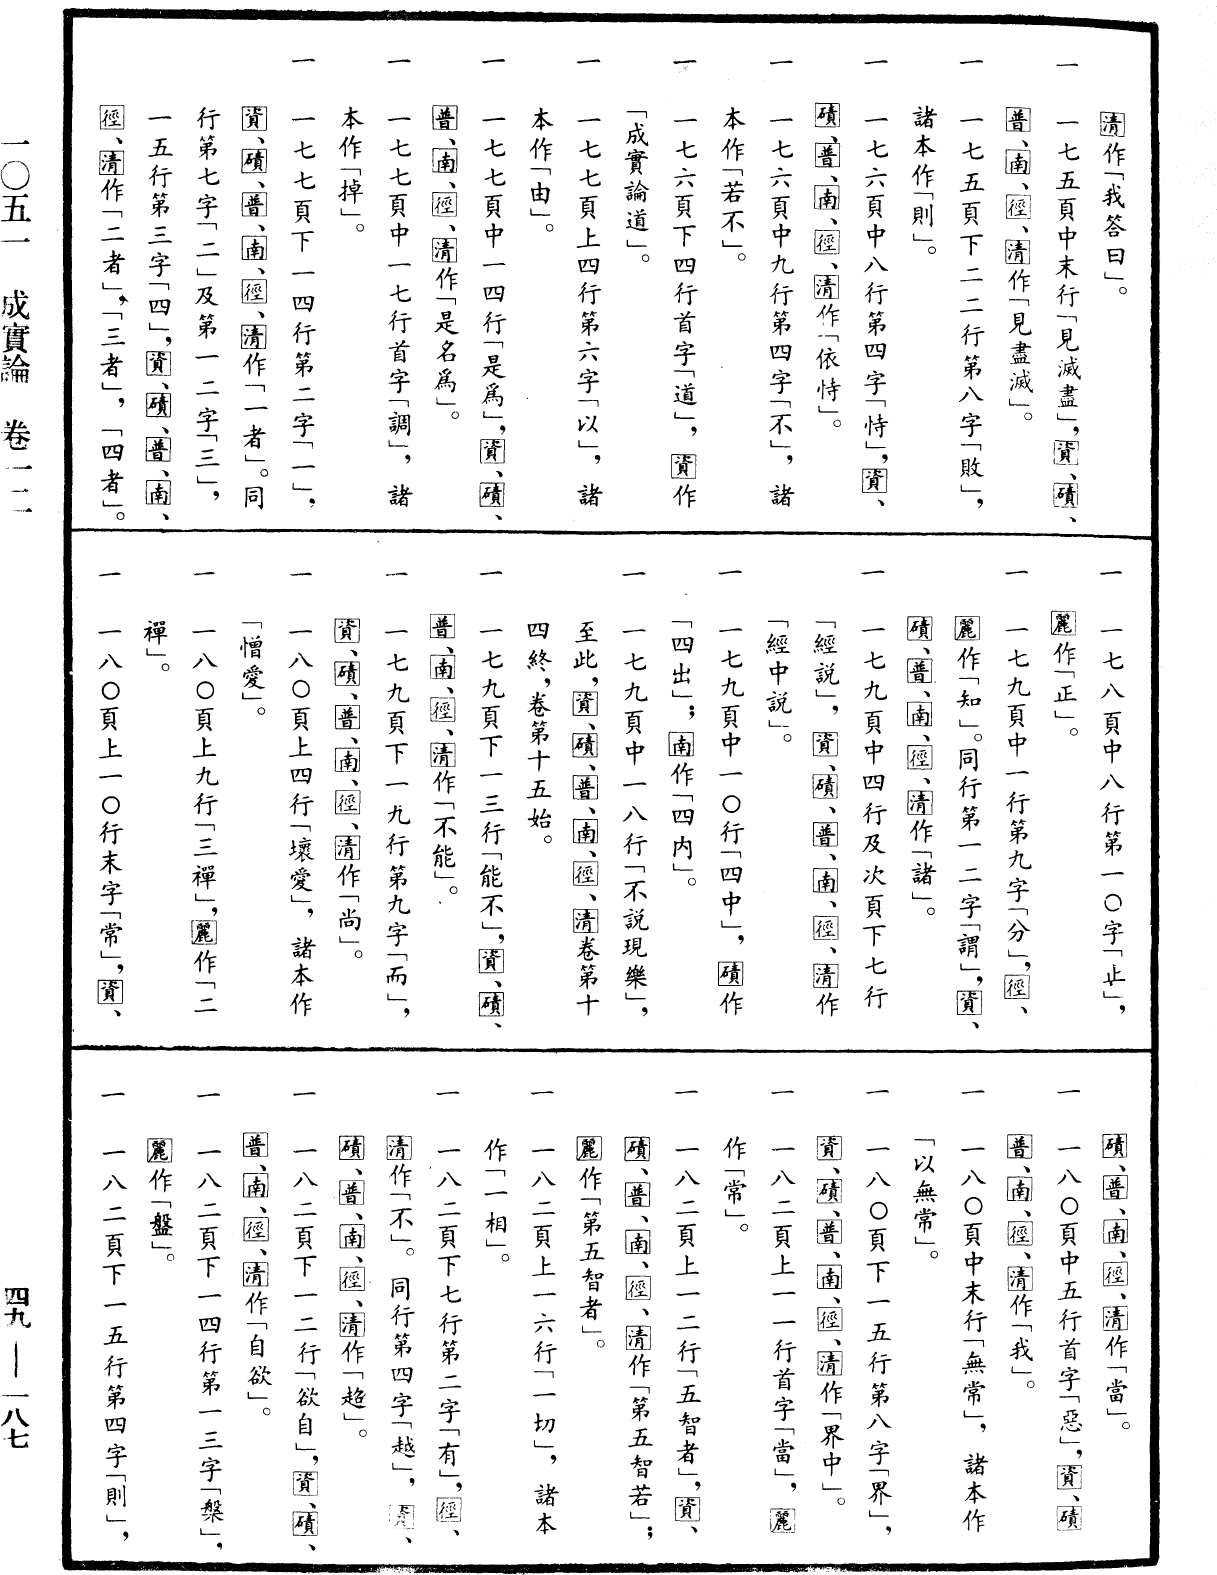 清作「我答曰」。
一　一七五頁中末行「見滅盡」，資、磧、
普、南、徑、清作「見盡滅」。
一　一七五頁下二二行第八字「敗」，
諸本作「則」。
一　一七六頁中八行第四字「恃」，資、
磧、普、南、徑、清作「依恃」。
一　一七六頁中九行第四字「不」，諸
本作「若不」。
一　一七六頁下四行首字「道」，資作
「成實論道」。
一　一七七頁上四行第六字「以」，諸
本作「由」。
一　一七七頁中一四行「是爲」，資、磧、
普、南、徑、清作「是名爲」。
一　一七七頁中一七行首字「調」，諸
本作「掉」。
一　一七七頁下一四行第二字「一」，
資、磧、普、南、徑、清作「一者」。同
行第七字「二」及第一二字「三」，
一五行第三字「四」，資、磧、普、南、
徑、清作「二者」，「三者」，「四者」。
一　一七八頁中八行第一〇字「止」，
麗作「正」。
一　一七九頁中一行第九字「分」，徑、
麗作「知」。同行第一二字「謂」，資、
磧、普、南、徑、清作「諸」。
一　一七九頁中四行及次頁下七行
「經説」，資、磧、普、南、徑、清作
「經中説」。
一　一七九頁中一〇行「四中」，磧作
「四出」；南作「四内」。
一　一七九頁中一八行「不説現樂」，
至此，資、磧、普、南、徑、清卷第十
四終，卷第十五始。
一　一七九頁下一三行「能不」，資、磧、
普、南、徑、清作「不能」。
一　一七九頁下一九行第九字「而」，
資、磧、普、南、徑、清作「尚」。
一　一八〇頁上四行「壞愛」，諸本作
「憎愛」。
一　一八〇頁上九行「三禪」，麗作「二
禪」。
一　一八〇頁上一〇行末字「常」，資、
磧、普、南、徑、清作「當」。
一　一八〇頁中五行首字「惡」，資、磧
普、南、徑、清作「我」。
一　一八〇頁中末行「無常」，諸本作
「以無常」。
一　一八〇頁下一五行第八字「界」，
資、磧、普、南、徑、清作「界中」。
一　一八二頁上一一行首字「當」，麗
作「常」。
一　一八二頁上一二行「五智者」，資、
磧、普、南、徑、清作「第五智若」；
麗作「第五智者」。
一　一八二頁上一六行「一切」，諸本
作「一相」。
一　一八二頁下七行第二字「有」，徑、
清作「不」。同行第四字「越」，資、
磧、普、南、徑、清作「趙」。
一　一八二頁下一二行「欲自」，資、磧、
普、南、徑、清作「自欲」。
一　一八二頁下一四行第一三字「槃」，
麗作「盤」。
一　一八二頁下一五行第四字「則」，
一〇五一　成實論　卷一二
四九——一八七